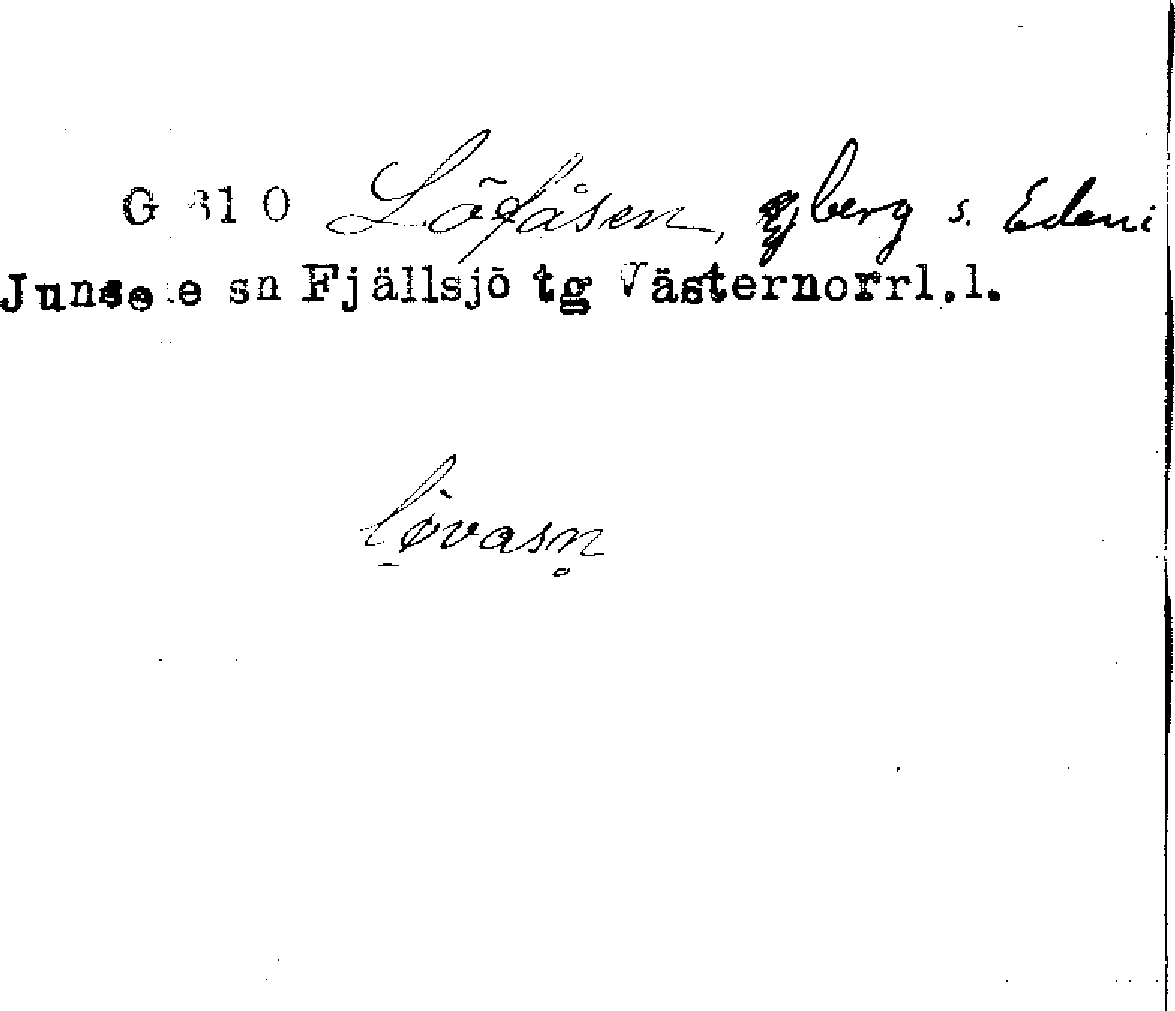 G 61 0 Löfåsen, berg s. Eden i
Junsele sn Fjällsjö tg Västernorrl.l.
lø̀vasn̥